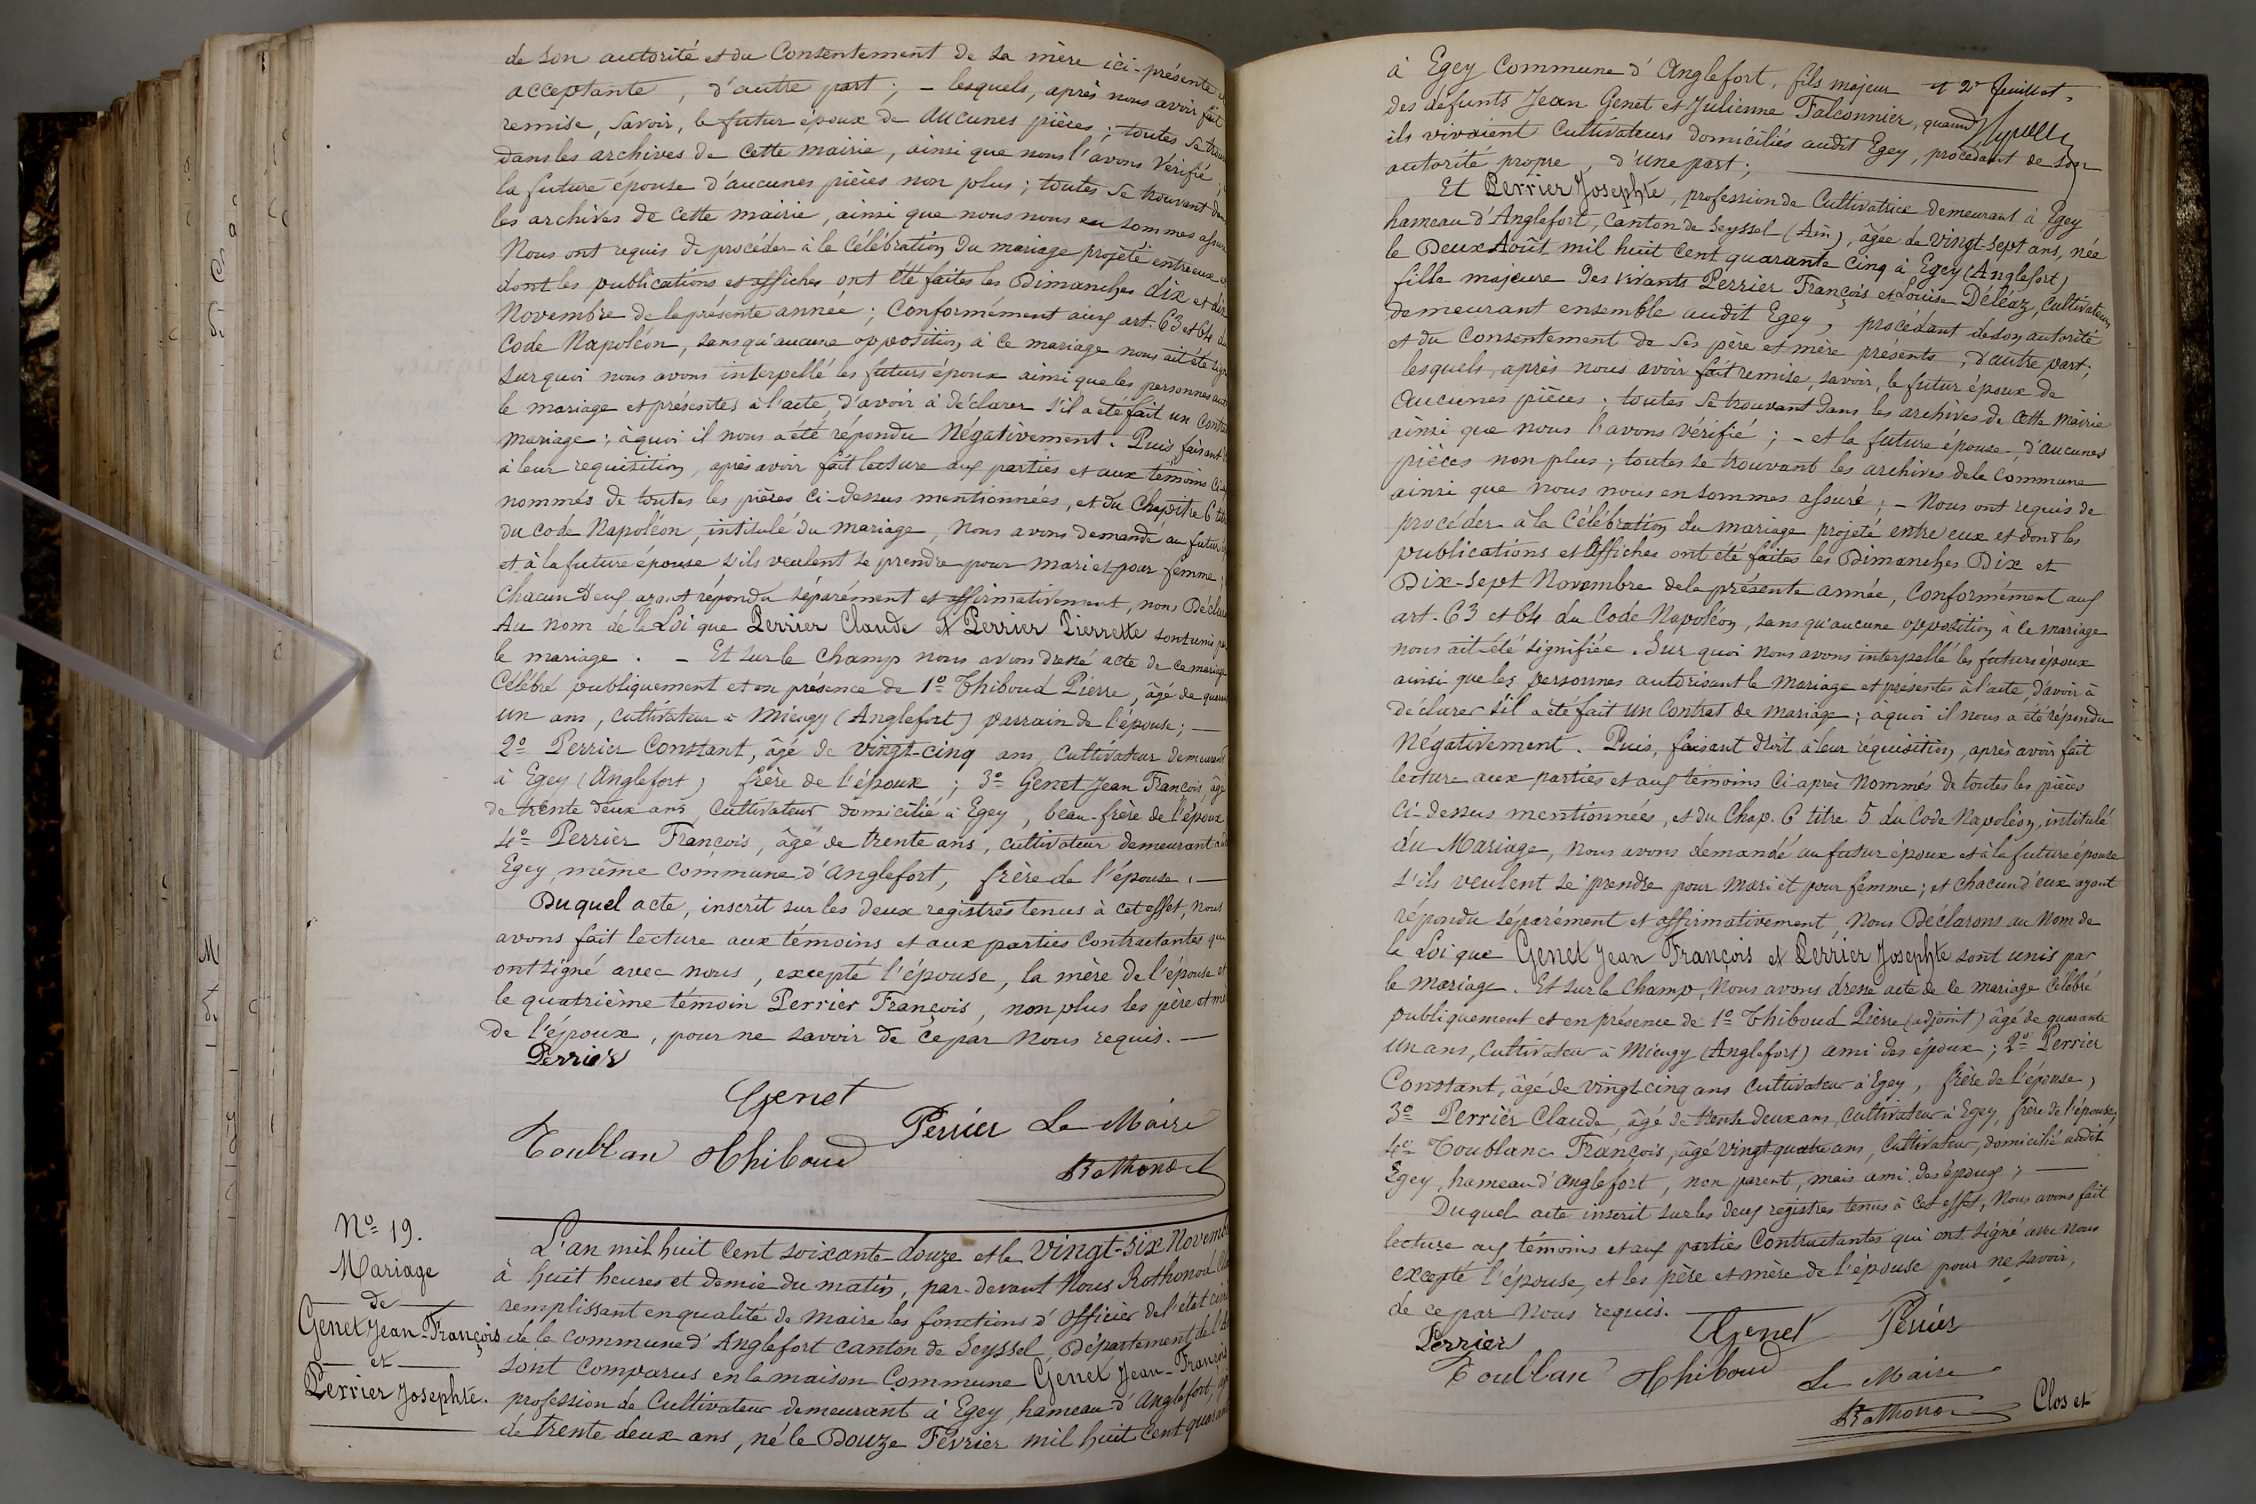 de son autorité et du Consentement de sa mère ici-présente
acceptante, d'autre part; - lesquels, après nous avoir fait
remise, savoir, le futur époux de aucunes pièces; toutes se
dans les archives de cette mairie, ainsi que nous l'avons Vérifié;
la future épouse d'aucunes pièces non plus; toutes se trouvant
les archives de cette mairie, ainsi que nous nous en sommes
Nous ont requis de procéder à la Célébration du mariage projeté entre eux
dont les publications et affiches ont été faites les Dimanches dix et
Novembre de la présente année; Conformément aux art. 63 et 64
Code Napoléon, sans qu'aucune opposition à ce mariage nous ait été
Sur quoi nous avons interpellé les futurs époux ainsi que les personnes
le mariage et présentes à l'acte, d'avoir à déclarer s'il a été fait un
mariage; à quoi il nous a été répondu Négativement. Puis faisant
à leur requisition, après avoir fait lecture aux parties et aux témoins
nommés de toutes les pièces ci-dessus mentionnées, et du Chapitre 6
du code Napoléon, intitulé du mariage, nous avons demandé au futur
et à la future épouse s'ils veulent se prendre pour mari et pour femme;
Chacun d'eux ayant répondu séparément et affirmativement, nous
Au nom de la Loi que Perrier Claude et Perrier Pierrette sont unis
le mariage. - Et sur le champ nous avons dressé acte de ce mariage
Célébré publiquement et en présence de 1º Thiboud Pierre, âgé de
un ans, cultivateur à Mieugy (Anglefort) parrain de l'épouse; -
2º Perrier Constant, âgé de vingt-cinq ans, Cultivateur demeurant
à Egey (Anglefort) frère de l'époux; 3º Genet Jean François,
de trente deux ans, Cultivateur domicilié à Egey, beau-frère de l'époux
4º Perrier François, âgé de trente ans, cultivateur demeurant
Egey, même commune d'Anglefort, frère de l'épouse. -
Duquel acte, inscrit sur les deux registres tenus à cet effet, nous
avons fait lecture aux témoins et aux parties Contractantes
ont signé avec nous, excepté l'épouse, la mère de l'épouse et
le quatrième témoin Perrier François, non plus les père et
de l'époux, pour ne savoir de ce par Nous requis. -
Perrier
Genet
Toublan Thiboud Perrier Le Maire
Rothonod
Nº 19.
Mariage
de
Genet Jean-François
et
Perrier Josephte.
L'an mil huit Cent soixante-douze et le Vingt-six
à huit heures et demie du matin, par-devant Nous Rothonod
remplissant en qualité de maire les fonctions d'Officier de l'état
de la commune d'Anglefort canton de Seyssel, Département
sont comparus en la maison Commune Genet Jean-François
profession de Cultivateur demeurant à Egey, hameau d'Anglefort,
de trente deux ans, né le Douze Février mil huit Cent
à Egey Commune d'Anglefort, fils majeur et 2e feuillet.
des défunts Jean Genet et Julienne Falconnier, quand
ils vivaient Cultivateurs domiciliés audit Egey, procédant de son
autorité propre, d'une part;
Et Perrier Josephte, profession de Cultivatrice demeurant à Egey
hameau d'Anglefort, canton de Seyssel (Ain), âgée de vingt-sept ans, née
le Deux Août mil huit Cent quarante cinq à Egey (Anglefort)
fille majeure des vivants Perrier François et Louise Déléaz, Cultivateurs
demeurant ensemble audit Egey, procédant de son autorité
et du Consentement de ses père et mère présents, d'autre part;
lesquels, après nous avoir fait remise, savoir, le futur époux de
aucunes pièces; toutes se trouvant dans les archives de cette Mairie
ainsi que nous l'avons vérifié; - et la future épouse d'aucunes
pièces non plus; toutes se trouvant les archives de la Commune
ainsi que nous nous en sommes assuré; - Nous ont requis de
procéder à la Célébration du mariage projeté entre eux et dont les
publications et Affiches ont été faites les Dimanches Dix et
Dix-sept Novembre de la présente année, Conformément aux
art. 63 et 64 du Code Napoléon, sans qu'aucune opposition à ce mariage
nous ait été signifiée. Sur quoi nous avons interpellé les futurs époux
ainsi que les personnes autorisant le Mariage et présentes à l'acte, d'avoir à
déclarer s'il a été fait un Contrat de mariage; à quoi il nous a été répondu
Négativement. Puis, faisant droit à leur réquisition, après avoir fait
lecture aux parties et aux témoins Ci-après Nommés de toutes les pièces
Ci-dessus mentionnées, et du Chap. 6 titre 5 du Code Napoléon, intitulé
du Mariage, nous avons demandé au futur époux et à la future épouse
s'ils veulent se prendre pour mari et pour femme; et chacun d'eux ayant
répondu séparément et affirmativement, Nous Déclarons au Nom de
la Loi que Genet Jean François et Perrier Josephte sont unis par
le mariage. Et sur le Champ, Nous avons dressé acte de ce mariage Célébré
publiquement et en présence de 1º Thiboud Pierre (adjoint) âgé de quarante
un ans, Cultivateur à Mieugy (Anglefort) ami des époux; 2º Perrier
Constant, âgé de vingt cinq ans Cultivateur à Egey, frère de l'épouse,
3º Perrier Claude, âgé de trente deux ans, Cultivateur à Egey, frère de l'épouse,
4º Toublanc François, âgé vingt-quatre ans, Cultivateur, domicilié audit
Egey, hameau d'Anglefort, non parent, mais ami des époux; -
Duquel acte inscrit sur les deux registres tenus à cet effet, Nous avons fait
lecture aux témoins et aux parties Contractantes qui ont signé avec nous
excepté l'épouse, et les père et mère de l'épouse pour ne savoir,
de ce par Nous requis.
Perrier Genet Perrier
Toublan Thiboud Le Maire
Rothonod Clos et